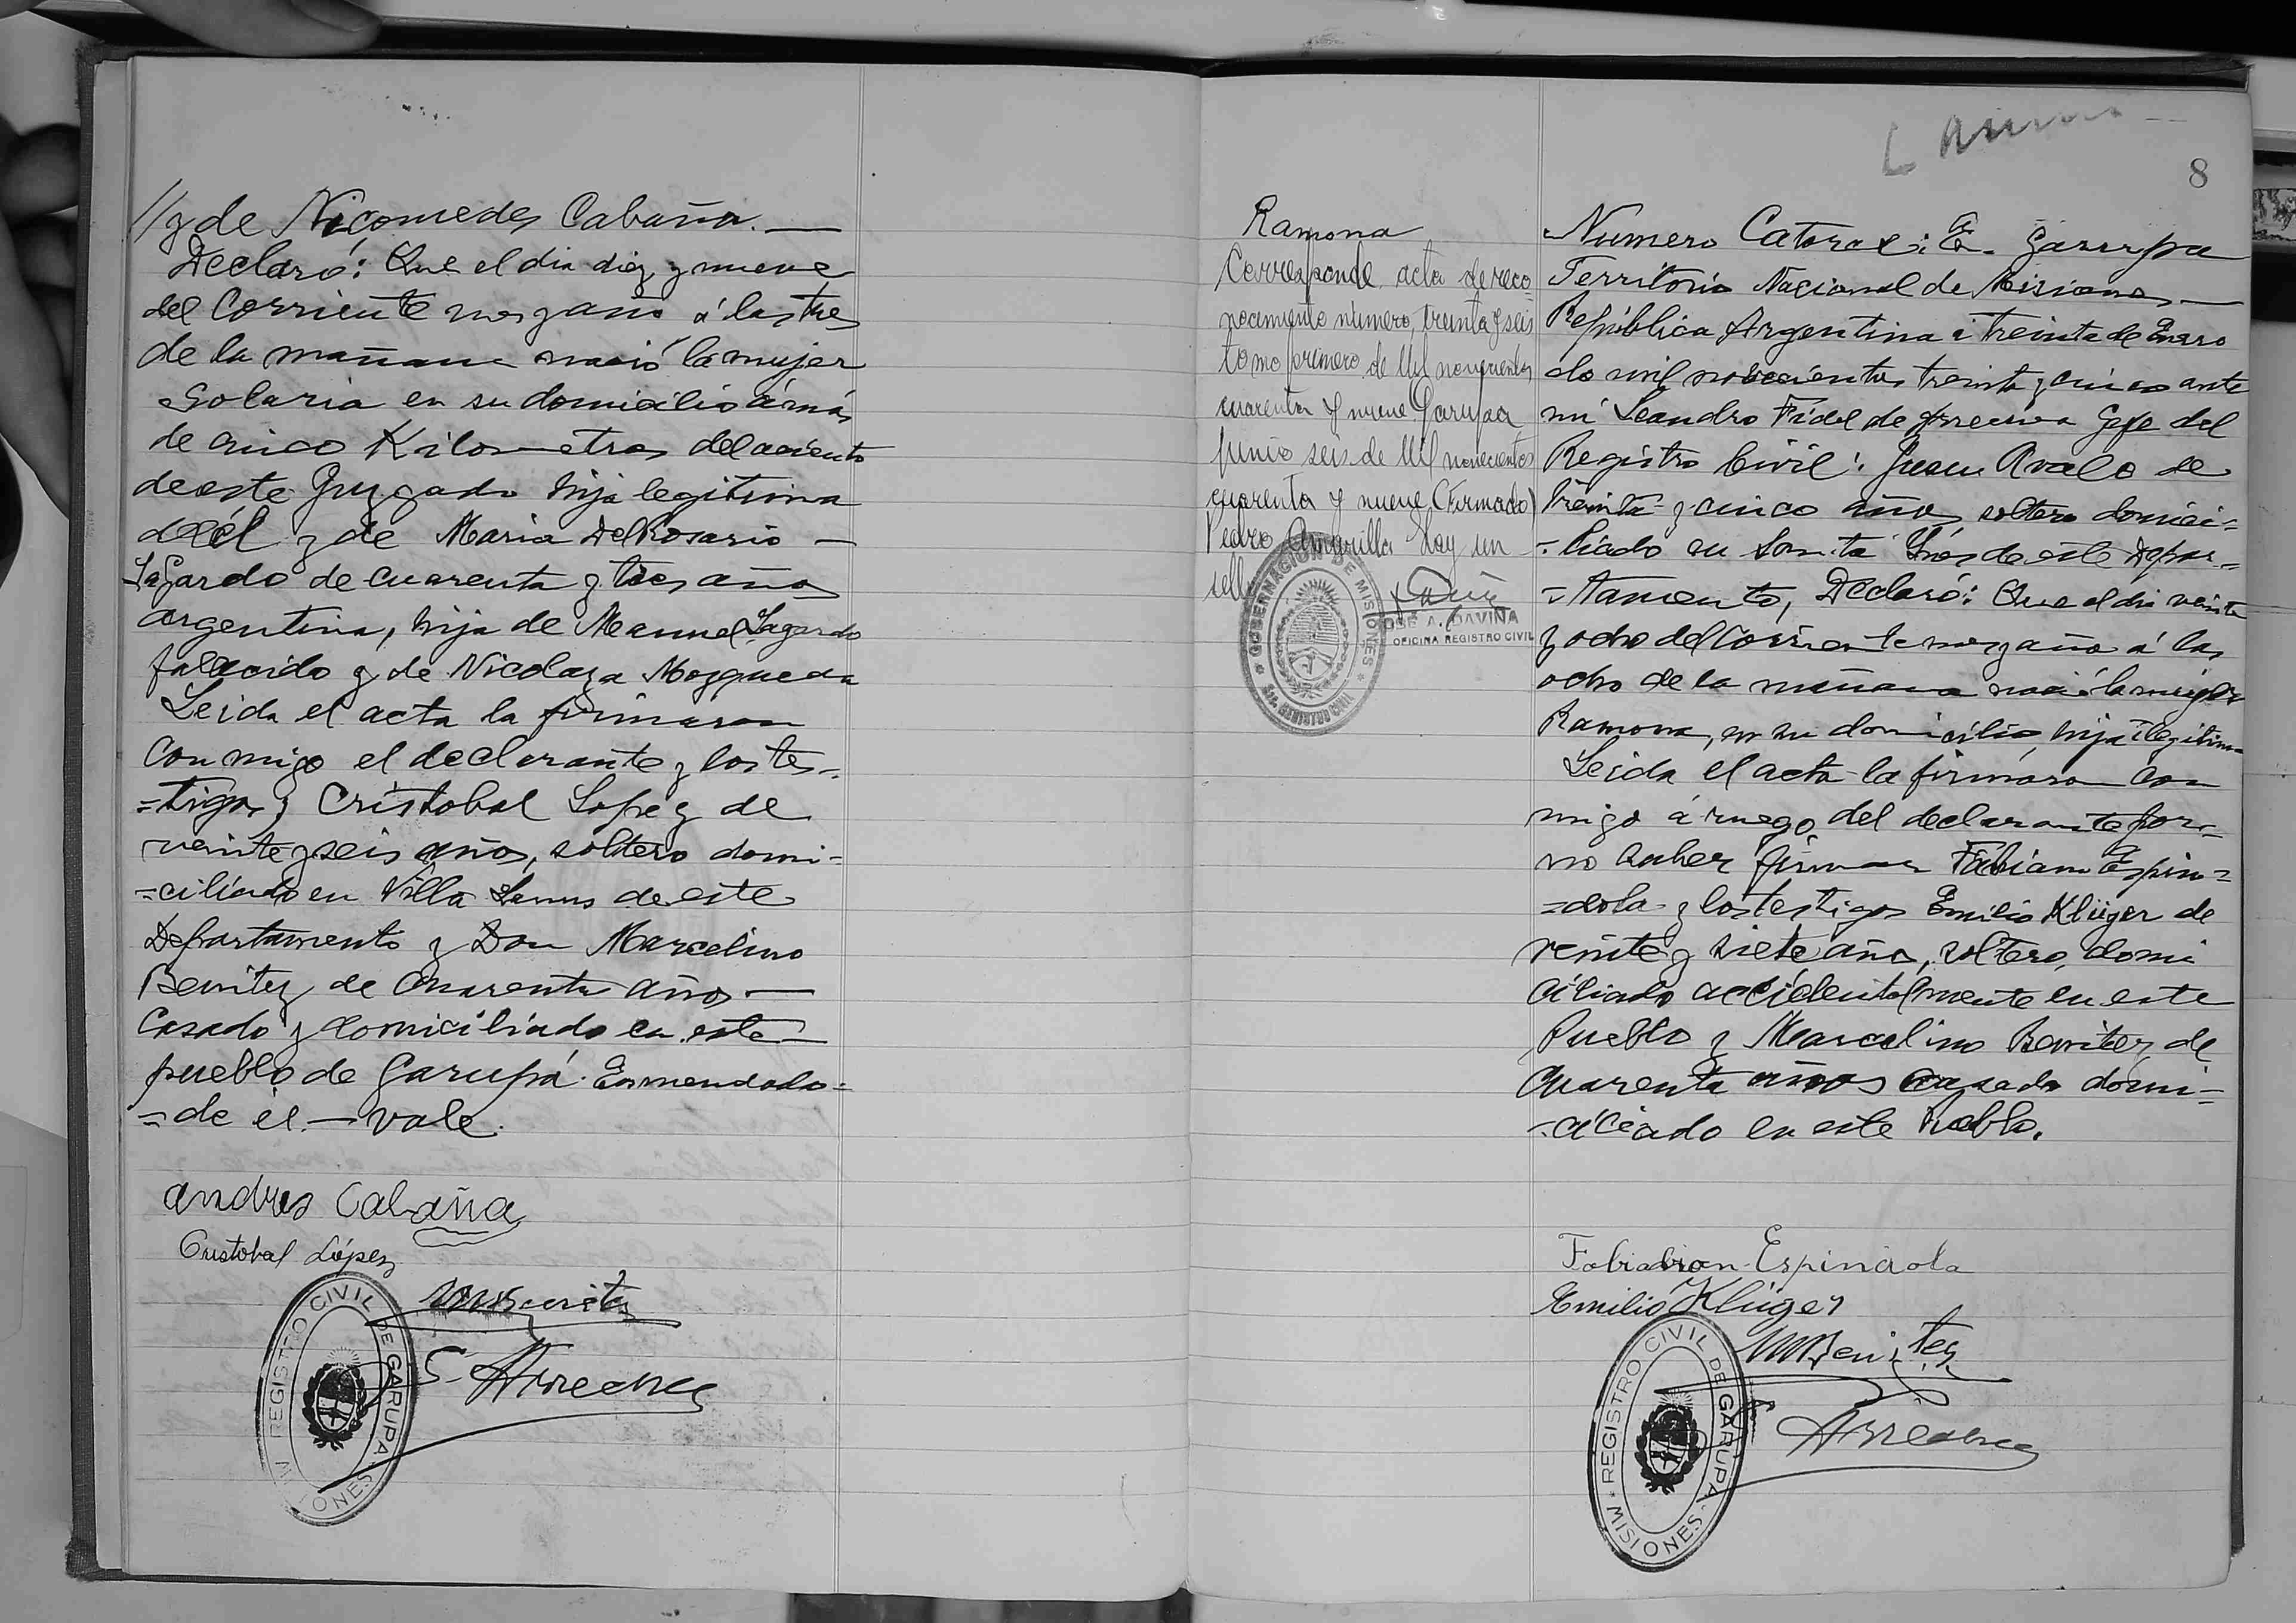 //y de Nicomedes Cabaña. —
Declaró: Que el dia diez y nueve
del Corriente mes y año á las tres
de la mañana nació la mujer
Solaria en su domicilio á más
de cinco Kilometros del aciento
de este Juzgado hija legitima
de él y de Maria Del Rosario —
Lagardo de cuarenta y tres años
argentina, hija de Manuel Lagardo
falecido y de Nicolaza Mozqueda
Leida el acta la firmaron
con migo el declarante y los tes-
=tigos, Cristobal Lopez de
veinte y seis años, soltero domi=
=ciliado en Villa Lanus de este
Departamento y Don Marcelino
Benitez de cuarenta años —
Casado y domiciliado en este —
pueblo de Garupá. Enmendado=
=de él — vale.
Andres Cabaña
Cristobal López
MBenitez
Arrechea
REGISTRO CIVIL DE GARUPA
MISIONES
8
Ramona
Corresponde acta de reco-
nocimiento número, treinta y seis
tomo primero de Mil novecientos
cuarenta y nueve Garupa
Junio seis de Mil novecientos
cuarenta y nueve (Firmado)
Pedro Amarilla Hay un
sello
GOBERNACION DE MISIONES
REGISTRO CIVIL
JOSE A. DAVIÑA
OFICINA REGISTRO CIVIL
Número Catorce: En Garupa
Territorio Nacional de Misiones —
República Argentina á treinta de Enero
de mil novecientos treinta y cinco ante
mi Leandro Fidel de Arrechea Gefe del
Registro Civil: Juan Avalo de
treinta y cinco años, soltero domici=
=liado en Santa Inés de este Depar-=
=tamento, Declaró: Que el dia veinte
y ocho del Corriente mes y año á las
ocho de la mañana nació la mujer
Ramona, en su domicilio, hija ilegitima
Leida el acta la firmaron con
migo á ruego del declarante por-
no saber firmar Fabian Espin=
=dola y los testigos Emilio Klüger de
veinte y siete años, soltero, domi
ciliado accidentalmente en este
Pueblo y Marcelino Benitez de
cuarenta años casado domi=
=ciliado en este Pueblo.
Fabiabian Espindola
Emilio Klüger
MBenitez
Arrechea
REGISTRO CIVIL DE GARUPA
MISIONES